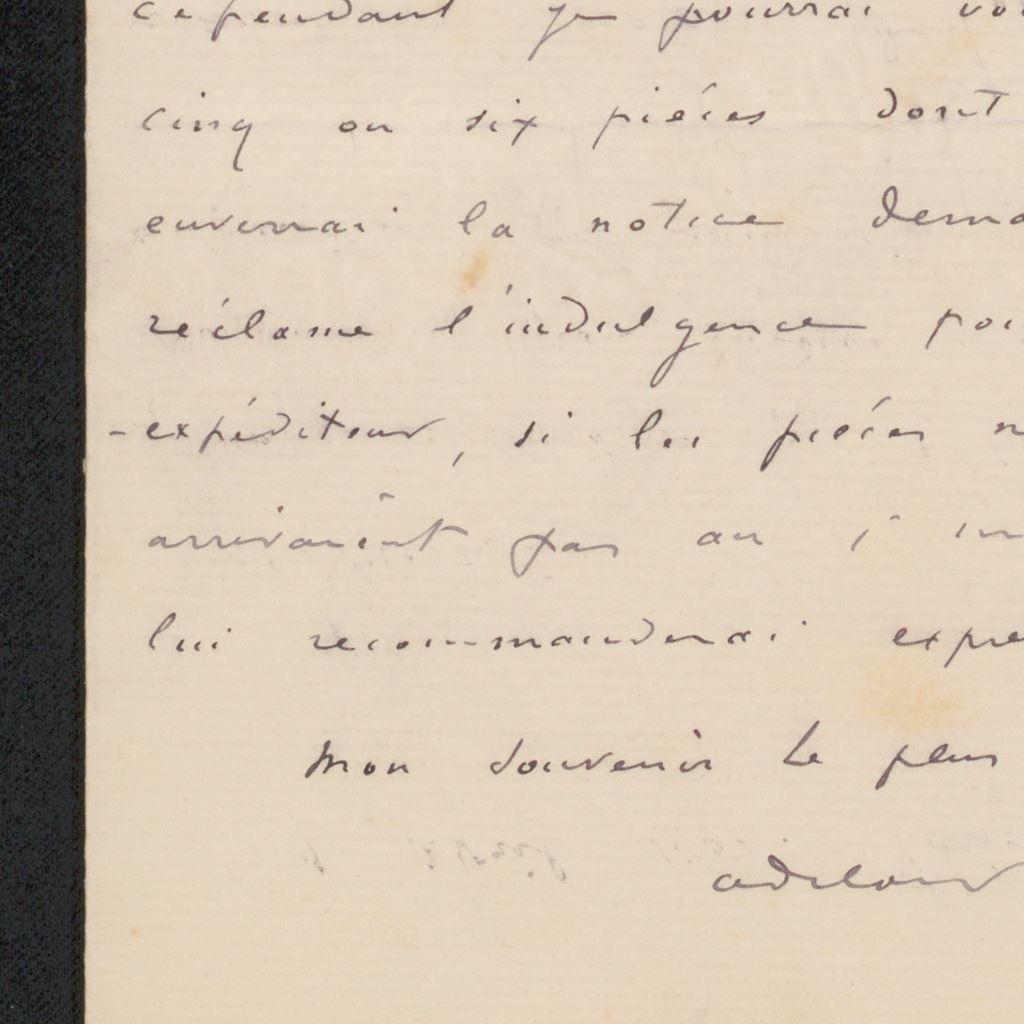 cependant je pourrai
cinq ou six piéces dont
enverrai la notice dema
réclame l'indulgence pou
-expéditeur, si les piéces n
arrivaient pas au 1
lui recommanderai expre
Mon souvenir le plus